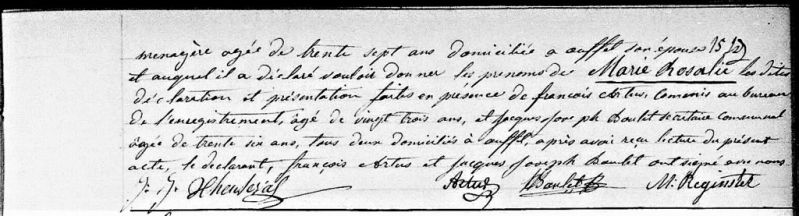 menagère agée de trente sept ans domiciliée a ouffet son épouse
et auquel il a déclaré vouloir donner les prenoms de Marie Rosalie les dites
déclaration et présentation faites en présence de françois Artus, Commis au bureau
de l'enregistrement, agé de vingt trois ans, et jacques Joseph Boulet secrétaire Communal
âgée de trente six ans, tous deux domiciliés à ouffet, après avoir reçu lecture du présent
acte, le declarant, françois Artus et jacques Joseph Boulet ont signé avec nous
J. J. Artus Boulet M. Reginster